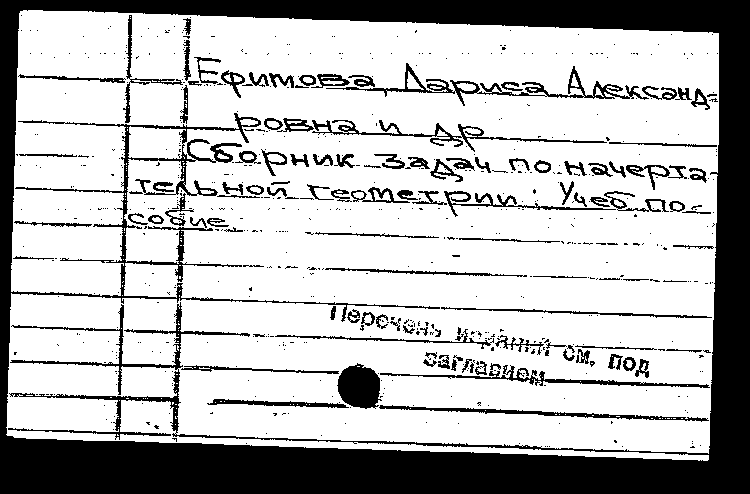 Ефимова, Лариса Александ-
ровна и др
Сборник задач по начерта-
тельной геометрии: Учеб. по-
собие.
Перечень изданий см. под
заглавием